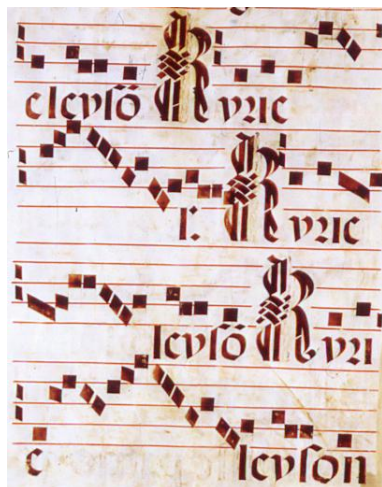 eleyſō Kyrie
Kyrie
leyſō Kyri
e leyſon